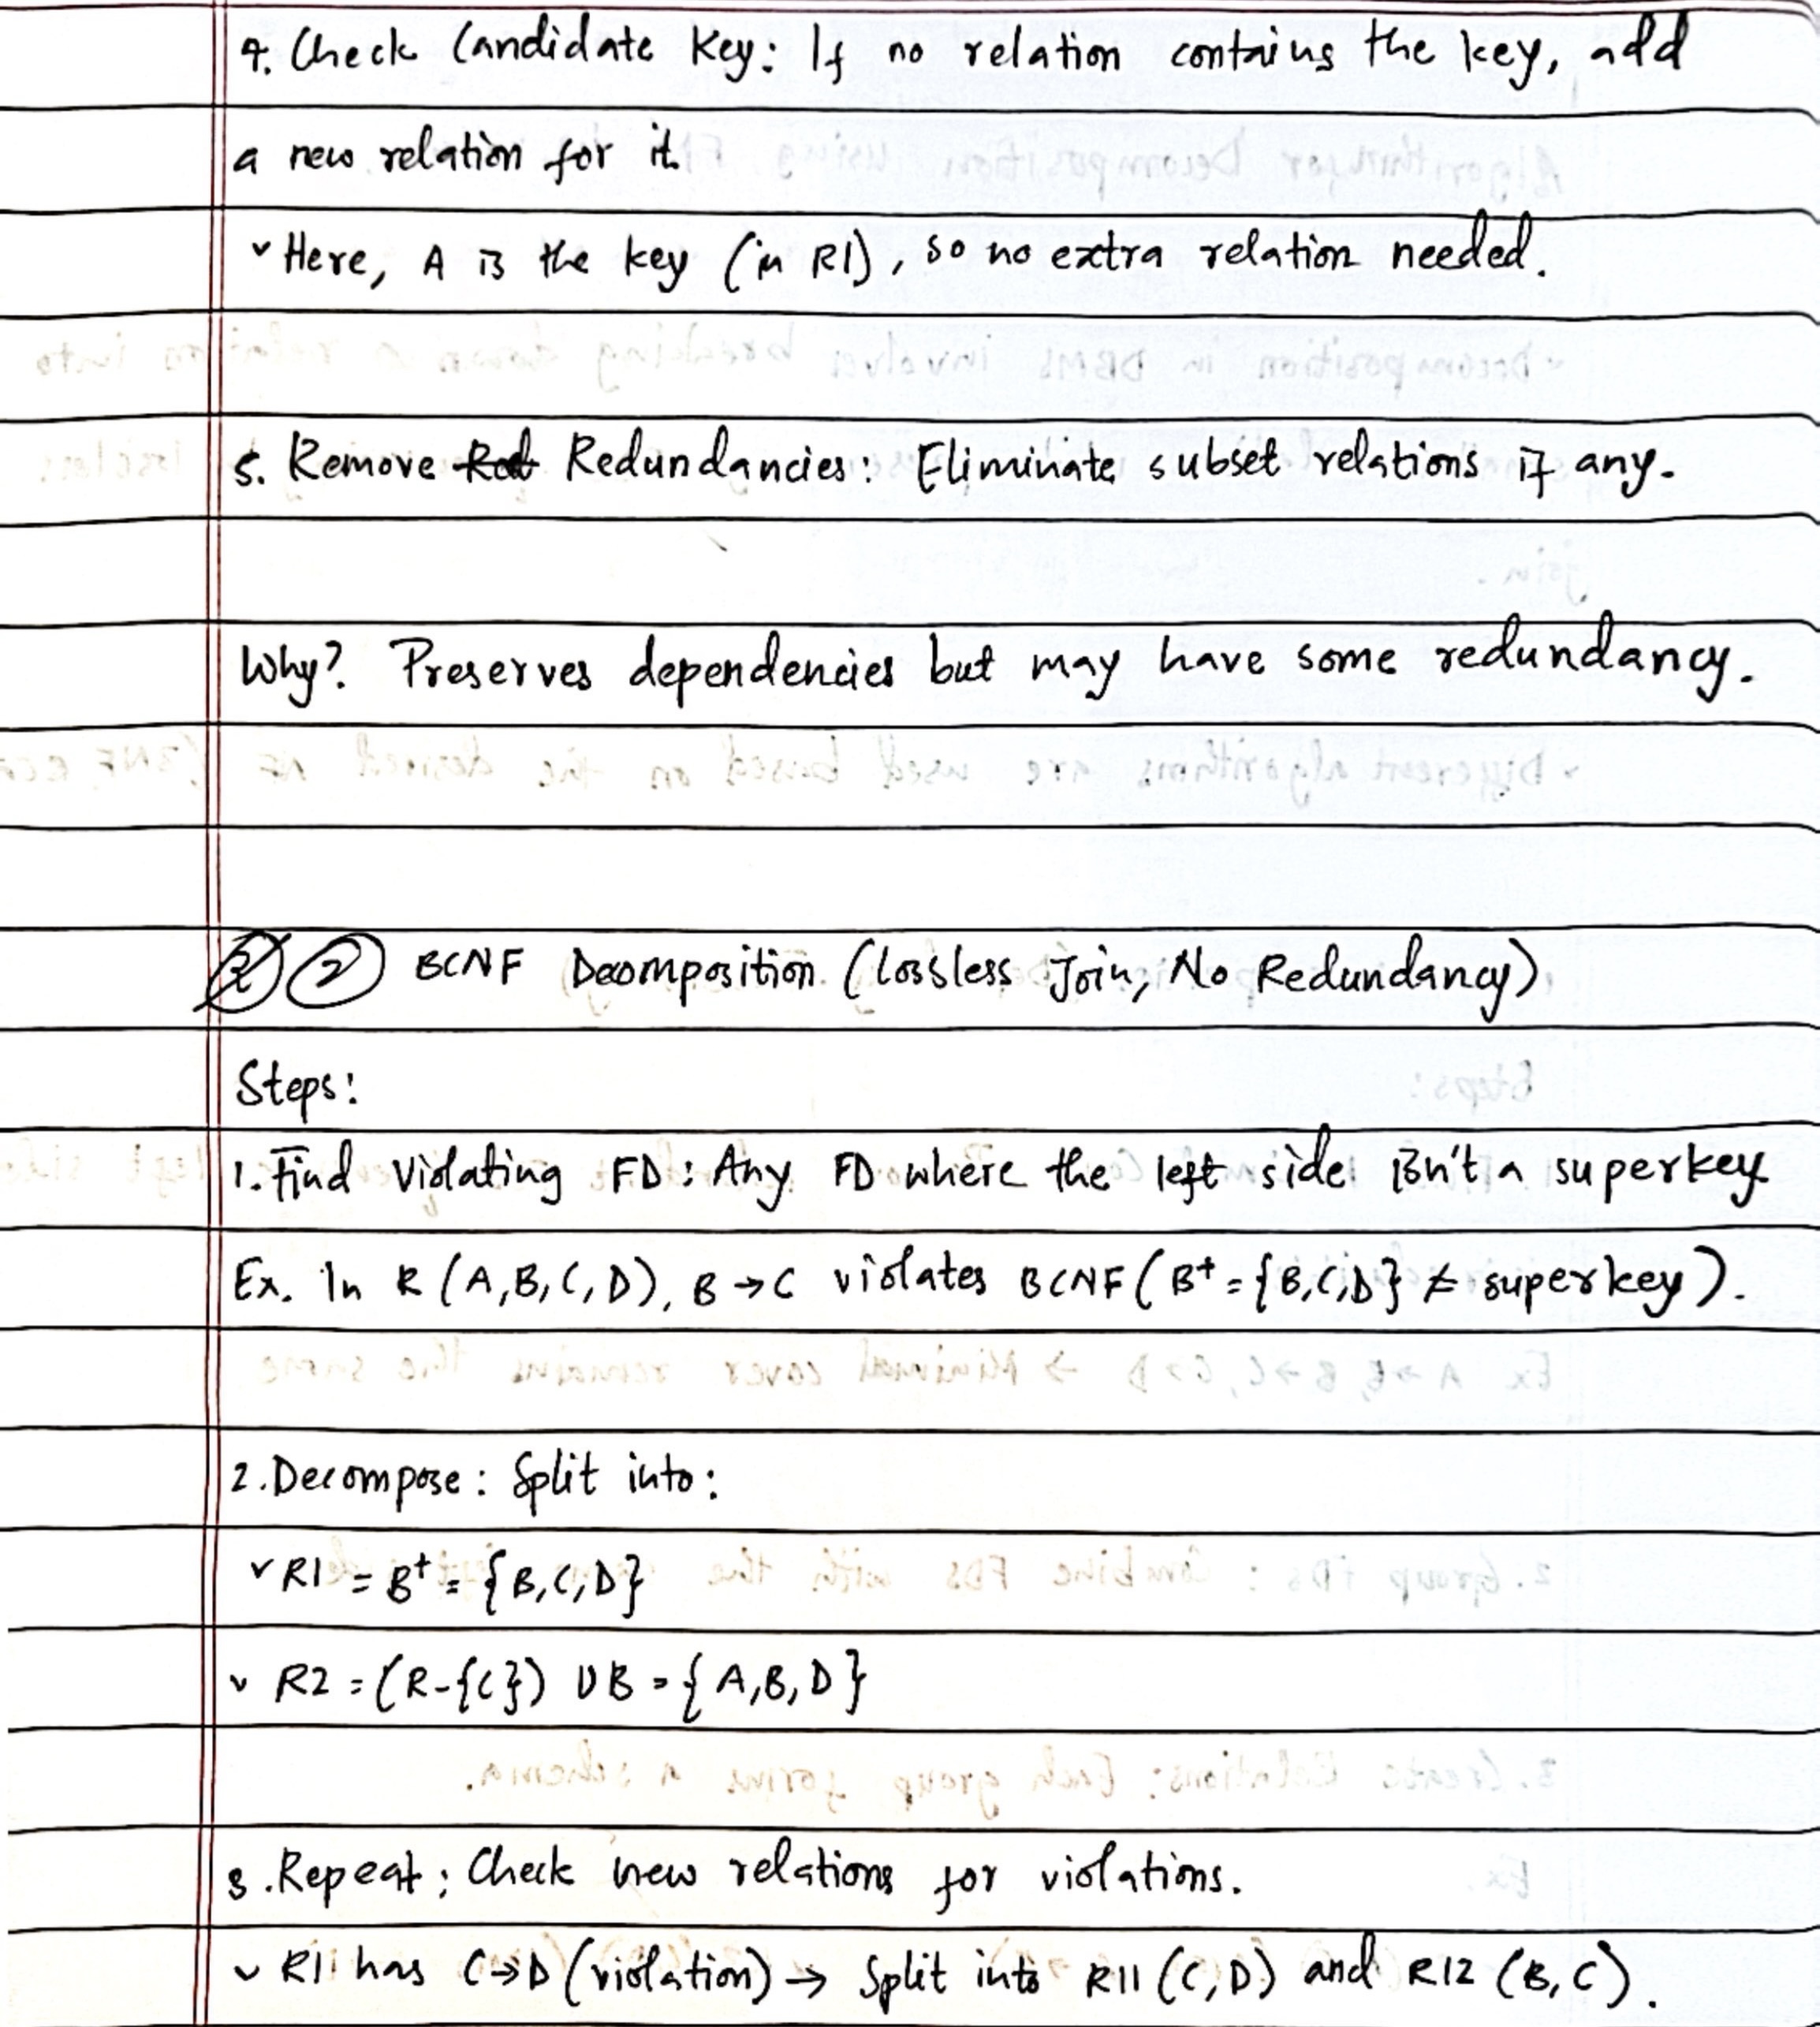 4. Check Candidate Key: If no relation contains the key, add
a new relation for it.
✓ Here, A is the key (in R1), so no extra relation needed.
5. Remove Redundancies: Eliminate subset relations if any.
Why? Preserves dependencies but may have some redundancy.
② BCNF Decomposition (Lossless Join, No Redundancy)
Steps:
1. Find Violating FD: Any FD where the left side isn't a superkey
Ex. In R (A,B,C,D), B→C violates BCNF (B⁺ = {B,C,D} ≠ superkey).
2. Decompose: Split into:
✓ R1 = B⁺ = {B,C,D}
✓ R2 = (R-{C}) ∪ B = {A,B,D}
3. Repeat: Check new relations for violations.
✓ R1 has C→D (violation) → Split into R11 (C,D) and R12 (B,C).